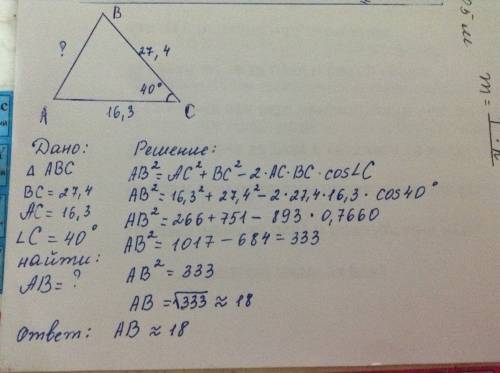 B
?
27,4
40°
A
16,3
C
Дано:
△ ABC
BC = 27,4
AC = 16,3
∠C = 40°
найти:
AB = ?
Решение:
AB² = AC² + BC² - 2·AC·BC·cos∠C
AB² = 16,3² + 27,4² - 2·27,4·16,3·cos40°
AB² = 266 + 751 - 893·0,7660
AB² = 1017 - 684 = 333
AB² = 333
AB = √333 ≈ 18
Ответ: AB ≈ 18